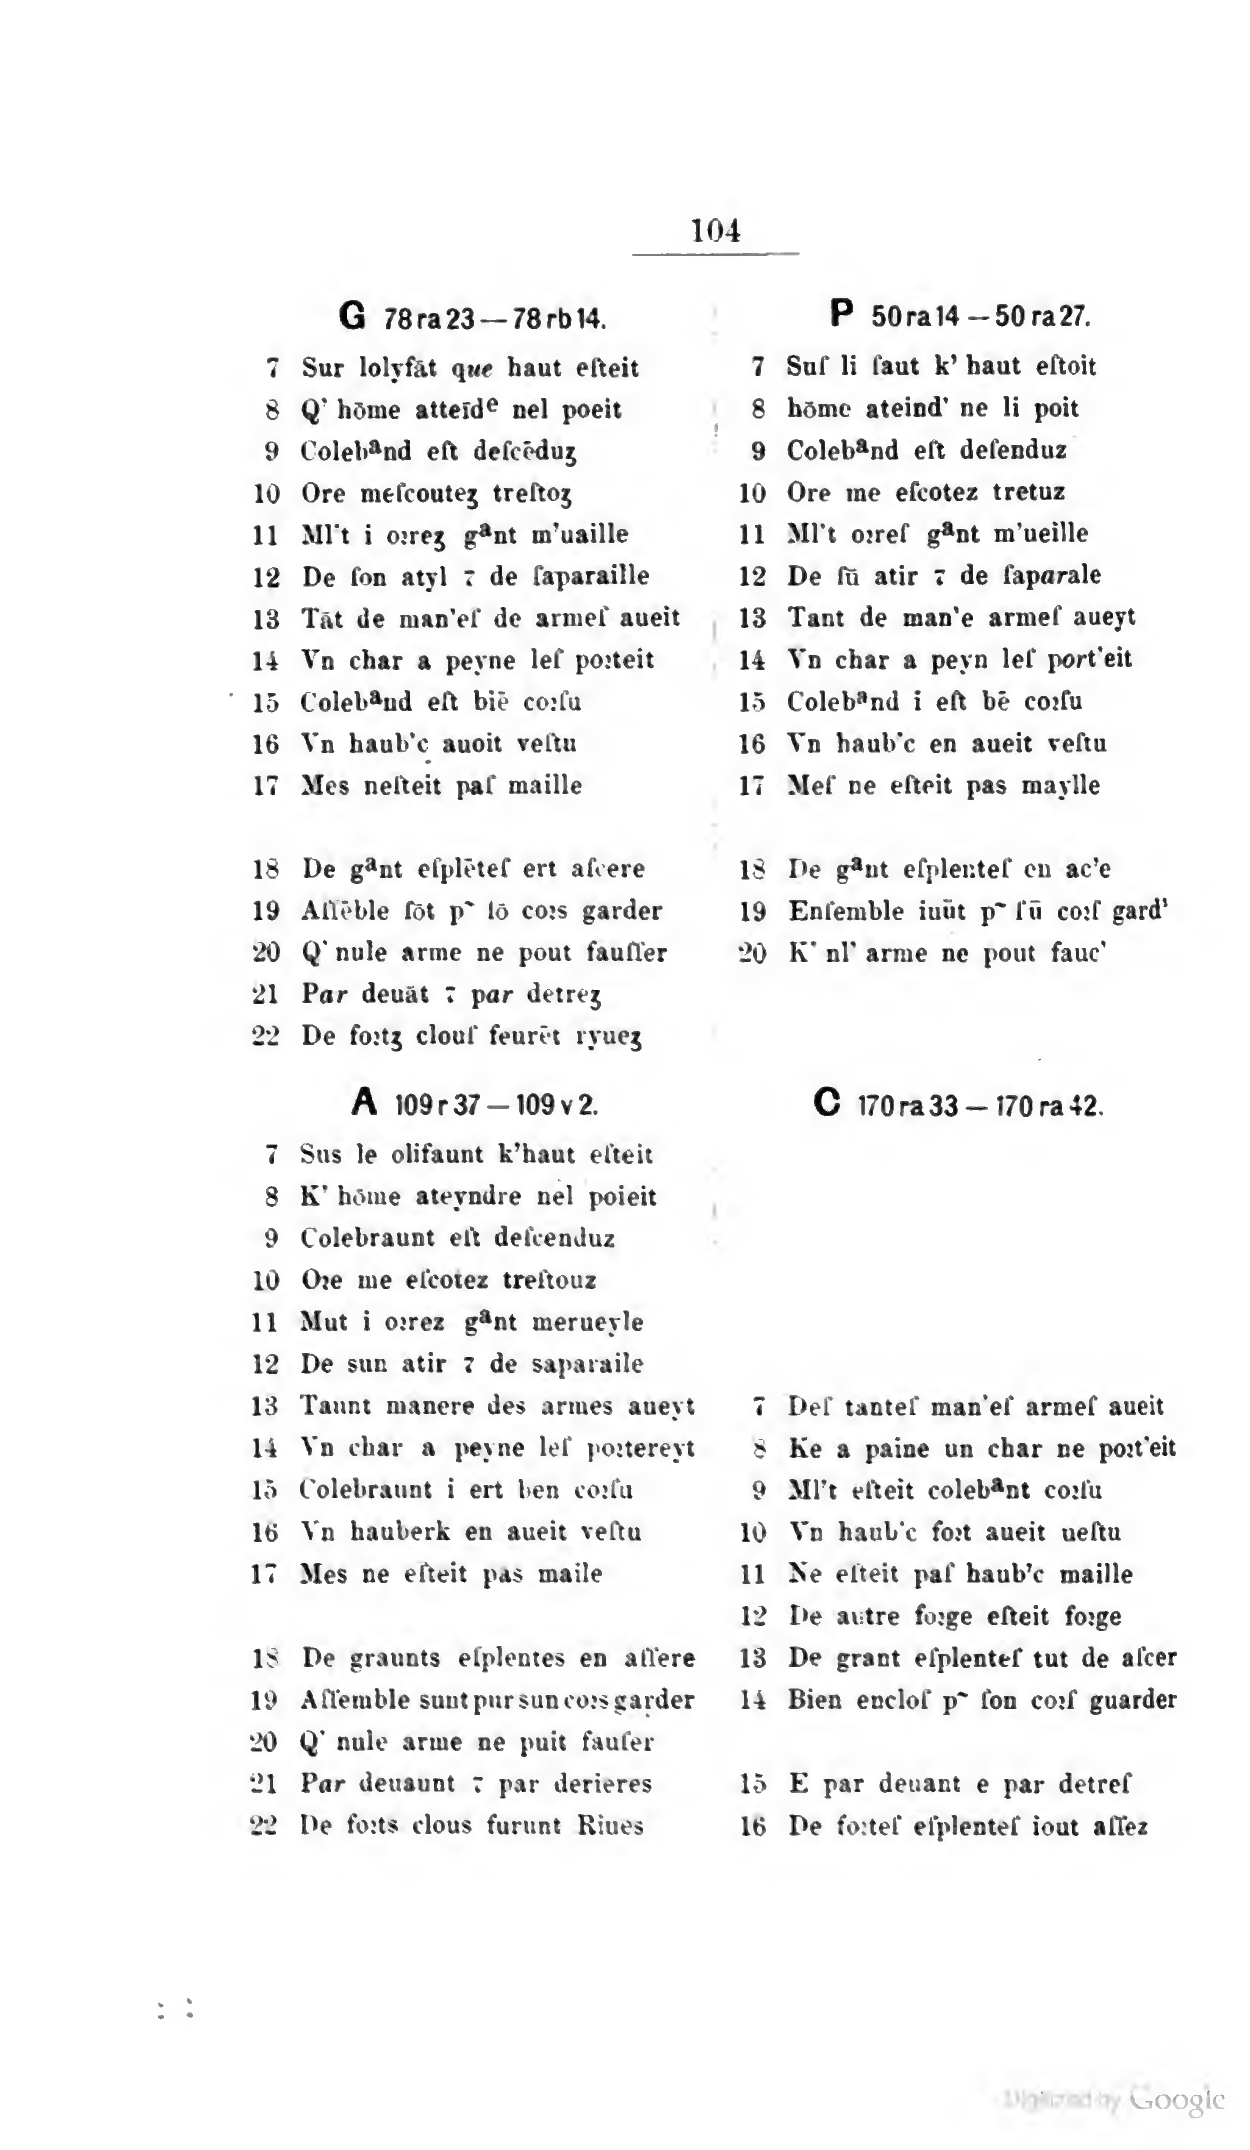 104
G 78ra23 — 78rb14.
7 Sur lolyfāt que haut eſteit
8 Q' hōme atteīdᵉ nel poeit
9 Colebᵃnd eſt deſcēduʒ
10 Ore meſcouteʒ treſtoʒ
11 Ml't i oꝛreʒ gᵃnt m'uaille
12 De ſon atyl ⁊ de ſaparaille
13 Tāt de man'eſ de armeſ aueit
14 Vn char a peyne leſ poꝛteit
15 Colebᵃnd eſt biē coꝛſu
16 Vn haub'c auoit veſtu
17 Mes neſteit paſ maille
18 De gᵃnt eſplēteſ ert aſcere
19 Aſſēble ſōt p~ ſō coꝛs garder
20 Q' nule arme ne pout fauſſer
21 Par deuāt ⁊ par detreʒ
22 De foꝛtʒ clouſ feurēt ryueʒ
P 50ra14 — 50ra27.
7 Suſ li ſaut k' haut eſtoit
8 hōme ateind' ne li poit
9 Colebᵃnd eſt deſenduz
10 Ore me eſcotez tretuz
11 Ml't oꝛreſ gᵃnt m'ueille
12 De ſū atir ⁊ de ſaparale
13 Tant de man'e armeſ aueyt
14 Vn char a peyn leſ port'eit
15 Colebᵃnd i eſt bē coꝛſu
16 Vn haub'c en aueit veſtu
17 Meſ ne eſteit pas maylle
18 De gᵃnt eſplenteſ en ac'e
19 Enſemble iuūt p~ ſū coꝛſ gard'
20 K' nl' arme ne pout fauc'
A 109r37 — 109v2.
7 Sus le olifaunt k'haut eſteit
8 K' hōme ateyndre nel poieit
9 Colebraunt eſt deſcenduz
10 Oꝛe me eſcotez treſtouz
11 Mut i oꝛrez gᵃnt merueyle
12 De sun atir ⁊ de saparaile
13 Taunt manere des armes aueyt
14 Vn char a peyne leſ poꝛtereyt
15 Colebraunt i ert ben coꝛſu
16 Vn hauberk en aueit veſtu
17 Mes ne eſteit pas maile
18 De graunts eſplentes en aſſere
19 Aſſemble sunt pur sun coꝛs garder
20 Q' nule arme ne puit fauſer
21 Par deuaunt ⁊ par derieres
22 De foꝛts clous furunt Riues
C 170ra33 — 170ra42.
7 Deſ tanteſ man'eſ armeſ aueit
8 Ke a paine un char ne poꝛt'eit
9 Ml't eſteit colebᵃnt coꝛſu
10 Vn haub'c foꝛt aueit ueſtu
11 Ne eſteit paſ haub'c maille
12 De autre foꝛge eſteit foꝛge
13 De grant eſplenteſ tut de aſcer
14 Bien encloſ p~ ſon coꝛſ guarder
15 E par deuant e par detreſ
16 De foꝛteſ eſplenteſ iout aſſez
Digitized by Google